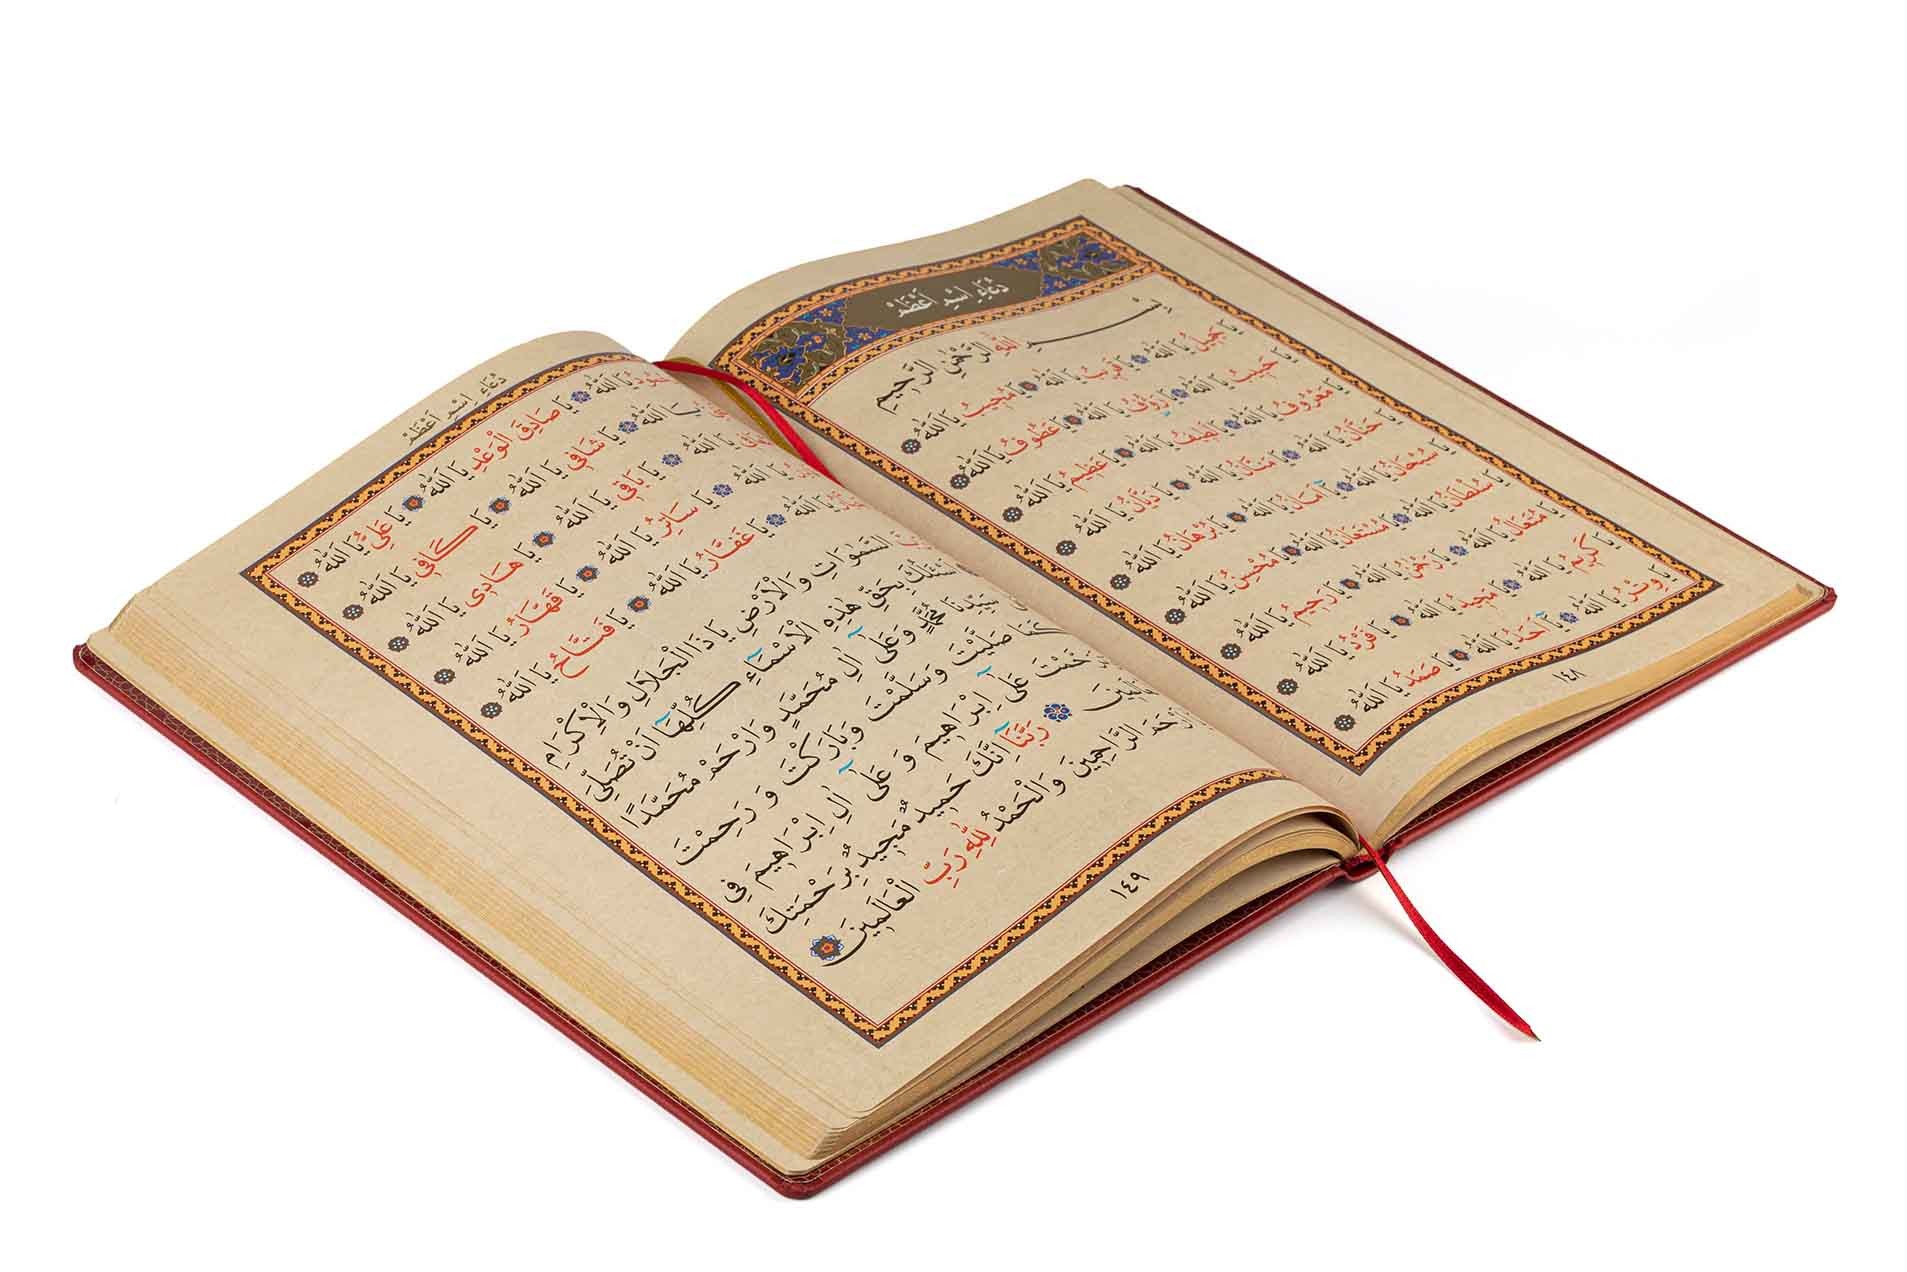 دُعَاءِ اسْمِ اَعْظَمْ
بِسْمِ اللهِ الرَّحْمٰنِ الرَّحِيمِ
يَا جَمِيلُ يَا اَللهُ يَا قَرِيبُ يَا اَللهُ يَا مُجِيبُ يَا اَللهُ
يَا حَبِيبُ يَا اَللهُ يَا رَؤُفُ يَا اَللهُ يَا عَطُوفُ يَا اَللهُ
يَا مَعْرُوفُ يَا اَللهُ يَا لَطِيفُ يَا اَللهُ يَا عَظِيمُ يَا اَللهُ
يَا حَنَّانُ يَا اَللهُ يَا مَنَّانُ يَا اَللهُ يَا دَيَّانُ يَا اَللهُ
يَا سُبْحَانُ يَا اَللهُ يَا اَمَانُ يَا اَللهُ يَا بُرْهَانُ يَا اَللهُ
يَا سُلْطَانُ يَا اَللهُ يَا مُسْتَعَانُ يَا اَللهُ يَا مُحْسِنُ يَا اَللهُ
يَا مُتَعَالُ يَا اَللهُ يَا رَحْمٰنُ يَا اَللهُ يَا رَحِيمُ يَا اَللهُ
يَا كَرِيمُ يَا اَللهُ يَا مَجِيدُ يَا اَللهُ يَا فَرْدُ يَا اَللهُ
يَا وِتْرُ يَا اَللهُ يَا اَحَدُ يَا اَللهُ يَا صَمَدُ يَا اَللهُ
١٤٨
دُعَاءِ اسْمِ اَعْظَمْ
يَا اَللهُ يَا صَادِقَ الْوَعْدِ يَا اَللهُ يَا عَلِيُّ يَا اَللهُ
يَا اَللهُ يَا شَافِى يَا اَللهُ يَا كَافِى يَا اَللهُ
يَا اَللهُ يَا بَاقِى يَا اَللهُ يَا هَادِى يَا اَللهُ
يَا اَللهُ يَا سَاتِرُ يَا اَللهُ يَا قَهَّارُ يَا اَللهُ
يَا اَللهُ يَا غَفَّارُ يَا اَللهُ يَا فَتَّاحُ يَا اَللهُ
السَّمٰوَاتِ وَالْاَرْضِ يَا ذَا الْجَلَالِ وَالْاِكْرَامِ
بِحَقِّ هٰذِهِ الْاَسْمَاءِ كُلِّهَا اَنْ تُصَلِّىَ
مُحَمَّدٍ وَعَلٰى اٰلِ مُحَمَّدٍ وَارْحَمْ مُحَمَّدًا
صَلَّيْتَ وَسَلَّمْتَ وَبَارَكْتَ وَرَحِمْتَ
عَلٰى اِبْرَاهِيمَ وَعَلٰى اٰلِ اِبْرَاهِيمَ فِى
رَبَّنَا اِنَّكَ حَمِيدٌ مَجِيدٌ بِرَحْمَتِكَ
الرَّاحِمِينَ وَالْحَمْدُ لِلّٰهِ رَبِّ الْعَالَمِينَ
١٤٩